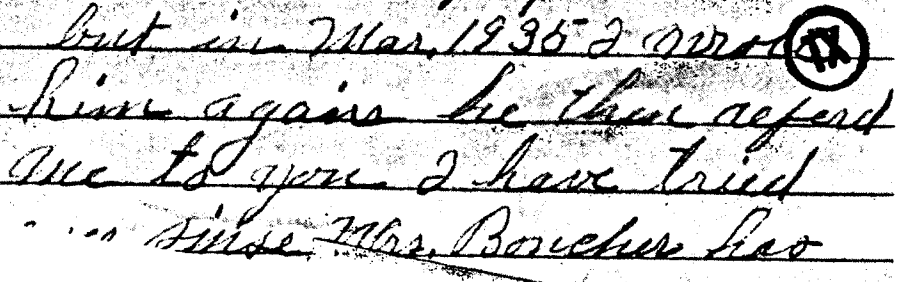 but in Mar. 1935 I wrote IX
him again he then referd
me to you I have tried
sinse Mrs. Boucher has